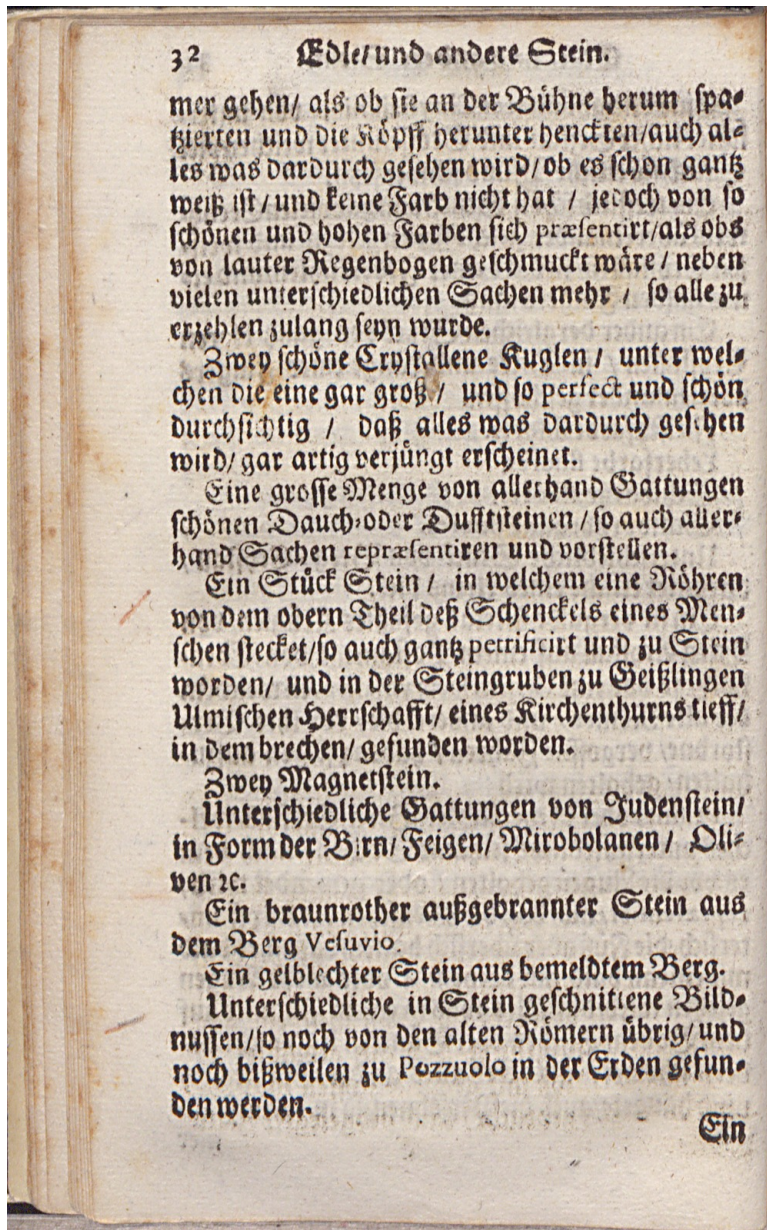 32 Edle/ und andere Stein.
mer gehen/ als ob sie an der Bühne herum spa-
tzierten und die Köpff herunter henckten/auch al-
les was dardurch gesehen wird/ ob es schon gantz
weiß ist / und keine Farb nicht hat / jedoch von so
schönen und hohen Farben sich præsentirt/als obs
von lauter Regenbogen geschmuckt wäre / neben
vielen unterschiedlichen Sachen mehr / so alle zu
erzehlen zulang seyn wurde.
Zwey schöne Crystallene Kuglen / unter wel-
chen die eine gar groß / und so perfect und schön
durchsichtig / daß alles was dardurch gesehen
wird/ gar artig verjüngt erscheinet.
Eine grosse Menge von allerhand Gattungen
schönen Dauch-oder Dufftsteinen / so auch aller-
hand Sachen repræsentiren und vorstellen.
Ein Stück Stein / in welchem eine Röhren
von dem obern Theil deß Schenckels eines Men-
schen stecket/so auch gantz petrificirt und zu Stein
worden/ und in der Steingruben zu Geißlingen
Ulmischen Herrschafft/ eines Kirchenthurns tieff/
in dem brechen/ gefunden worden.
Zwey Magnetstein.
Unterschiedliche Gattungen von Judenstein/
in Form der Birn/ Feigen/ Mirobolanen / Oli-
ven ꝛc.
Ein braunrother außgebrannter Stein aus
dem Berg Vesuvio.
Ein gelblechter Stein aus bemeldtem Berg.
Unterschiedliche in Stein geschnittene Bild-
nussen/so noch von den alten Römern übrig/ und
noch bißweilen zu Pozzuolo in der Erden gefun-
den werden.
Ein